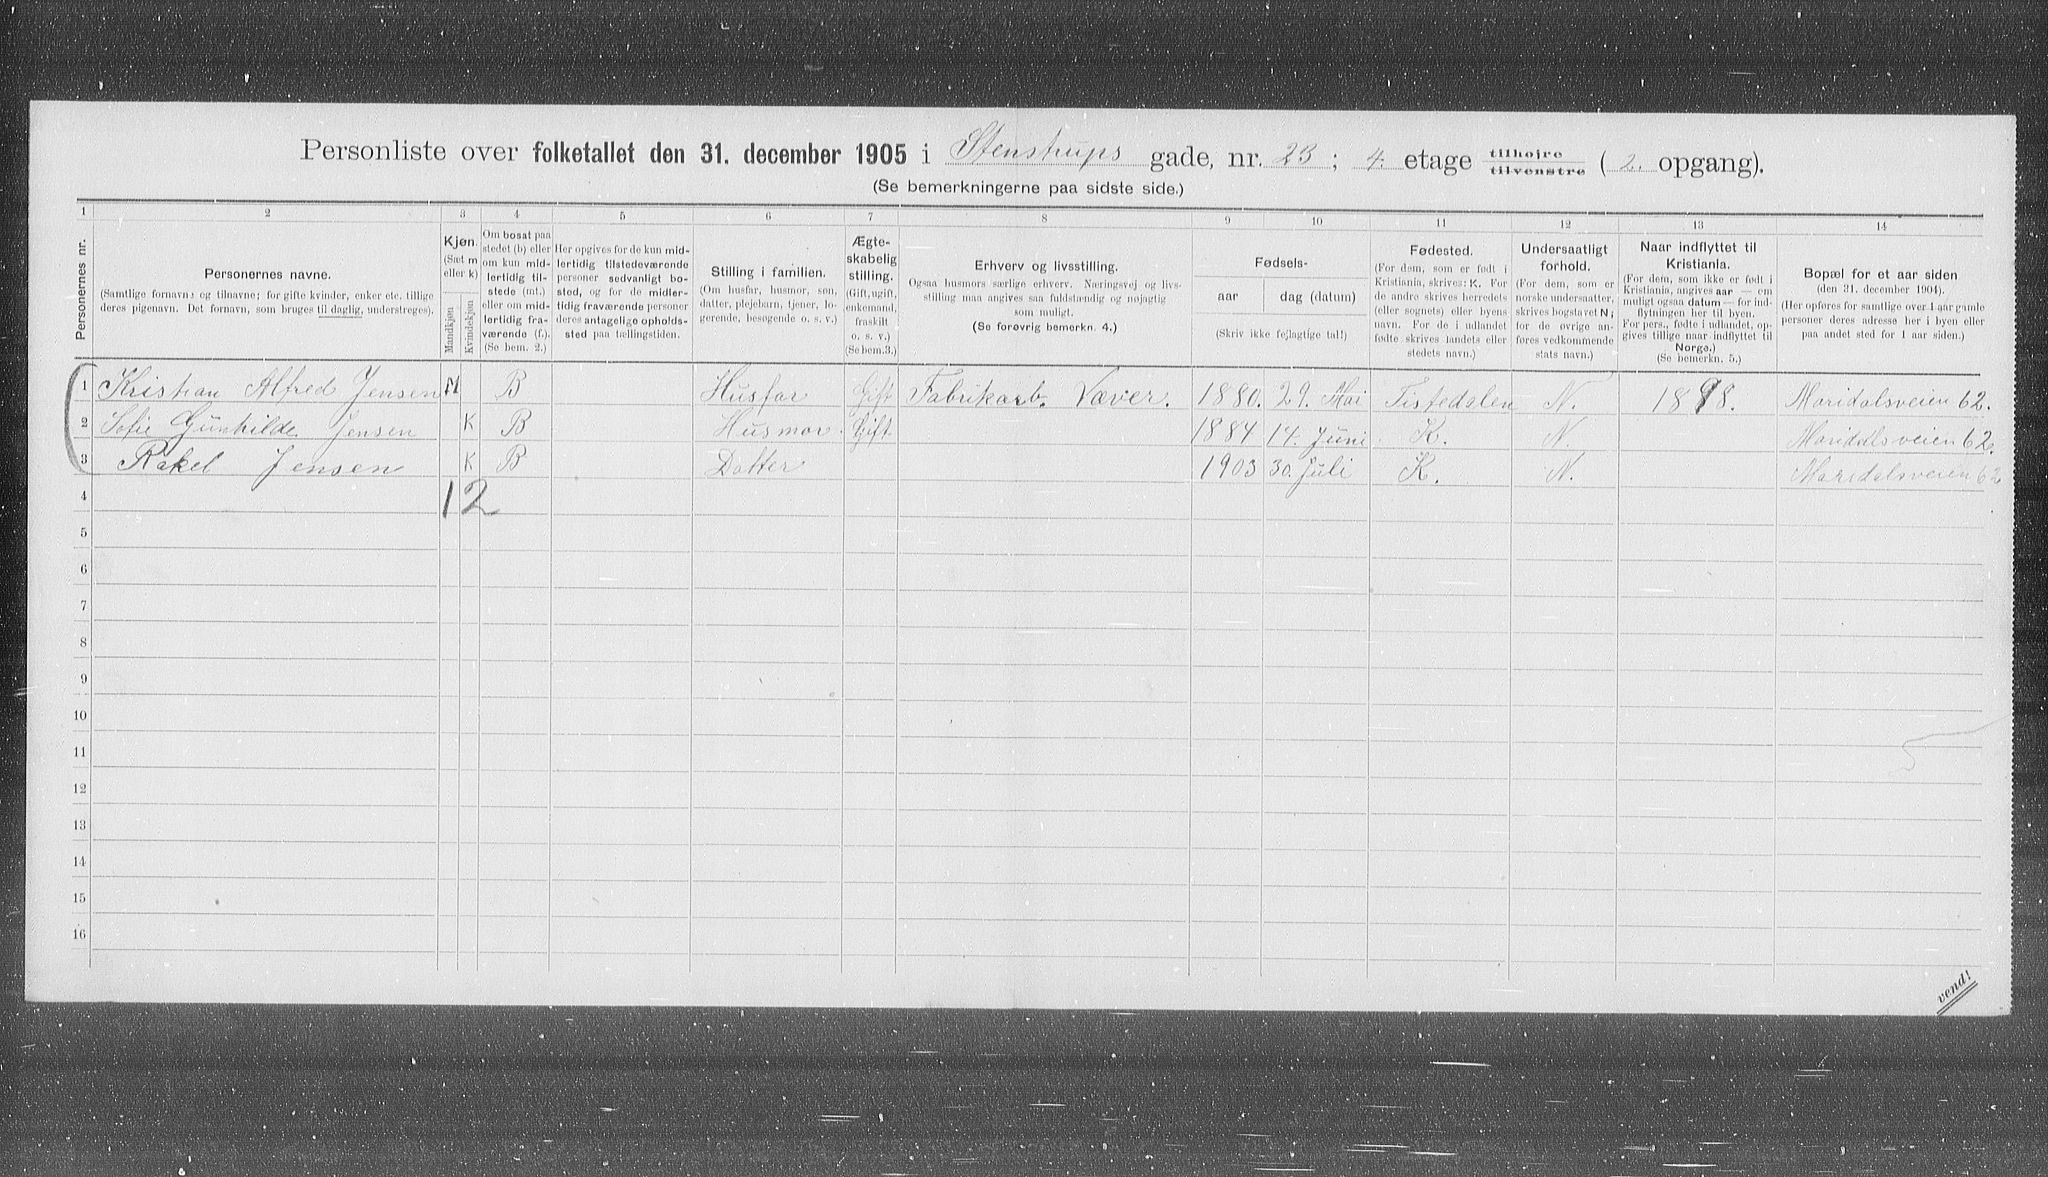 Personliste over folketallet den 31. december 1905 i Stenstrups gade, nr. 23; 4. etage tilhøire tilvenstre (2. opgang).
(Se bemerkningerne paa sidste side.)
1 2 3 4 5 6 7 8 9 10 11 12 13 14
Personernes nr.
Personernes navne.
(Samtlige fornavne og tilnavne; for gifte kvinder, enker etc. tillige deres pigenavn. Det fornavn, som bruges til daglig, understreges).
Kjøn.
(Sæt m eller k)
Mandkjøn
Kvindekjøn
Om bosat paa stedet (b) eller om kun midlertidig tilstede (mt.) eller om midlertidig fraværende (f.).
(Se bem. 2.)
Her opgives for de kun midlertidig tilstedeværende personer sedvanligt bosted, og for de midlertidig fraværende personer deres antagelige opholdssted paa tællingstiden.
Stilling i familien.
(Om husfar, husmor, søn, datter, plejebarn, tjener, logerende, besøgende o. s. v.)
Ægteskabelig stilling.
(Gift, ugift, enkemand, fraskilt o. s. v.)
(Se bem.3.)
Erhverv og livsstilling.
Ogsaa husmors særlige erhverv. Næringsvej og livsstilling maa angives saa fuldstændig og nøjagtig som muligt.
(Se forøvrig bemerkn. 4.)
Fødsels-
aar dag (datum)
(Skriv ikke fejlagtige tal!)
Fødested.
(For dem, som er født i Kristiania, skrives: K. For de andre skrives herredets (eller sognets) eller byens navn. For de i udlandet fødte skrives landets eller stedets navn.)
Undersaatligt forhold.
(For dem, som er norske undersaatter, skrives bogstavet N; for de øvrige anføres vedkommende stats navn.)
Naar indflyttet til Kristiania.
(For dem, som ikke er født i Kristiania, angives aar — om muligt ogsaa datum — for indflytningen her til byen. For pers., fødte i udlandet, opgives tillige naar indflyttet til Norge.)
(Se bemerkn. 5.)
Bopæl for et aar siden
(den 31. december 1904).
(Her opføres for samtlige over 1 aar gamle personer deres adresse her i byen eller paa andet sted for 1 aar siden.)
1 Kristian Alfred Jensen M B Husfar Gift Fabrikarb. Væver. 1880. 29. Mai Tistedalen N. 1898. Maridalsveien 62.
2 Sofie Gunhilde Jensen K B Husmor Gift 1884 14. Juni K. N. Maridalsveien 62.
3 Rakel Jensen K B Datter 1903 30. Juli K. N. Maridalsveien 62
4 1 2
5
6
7
8
9
10
11
12
13
14
15
16
vend!